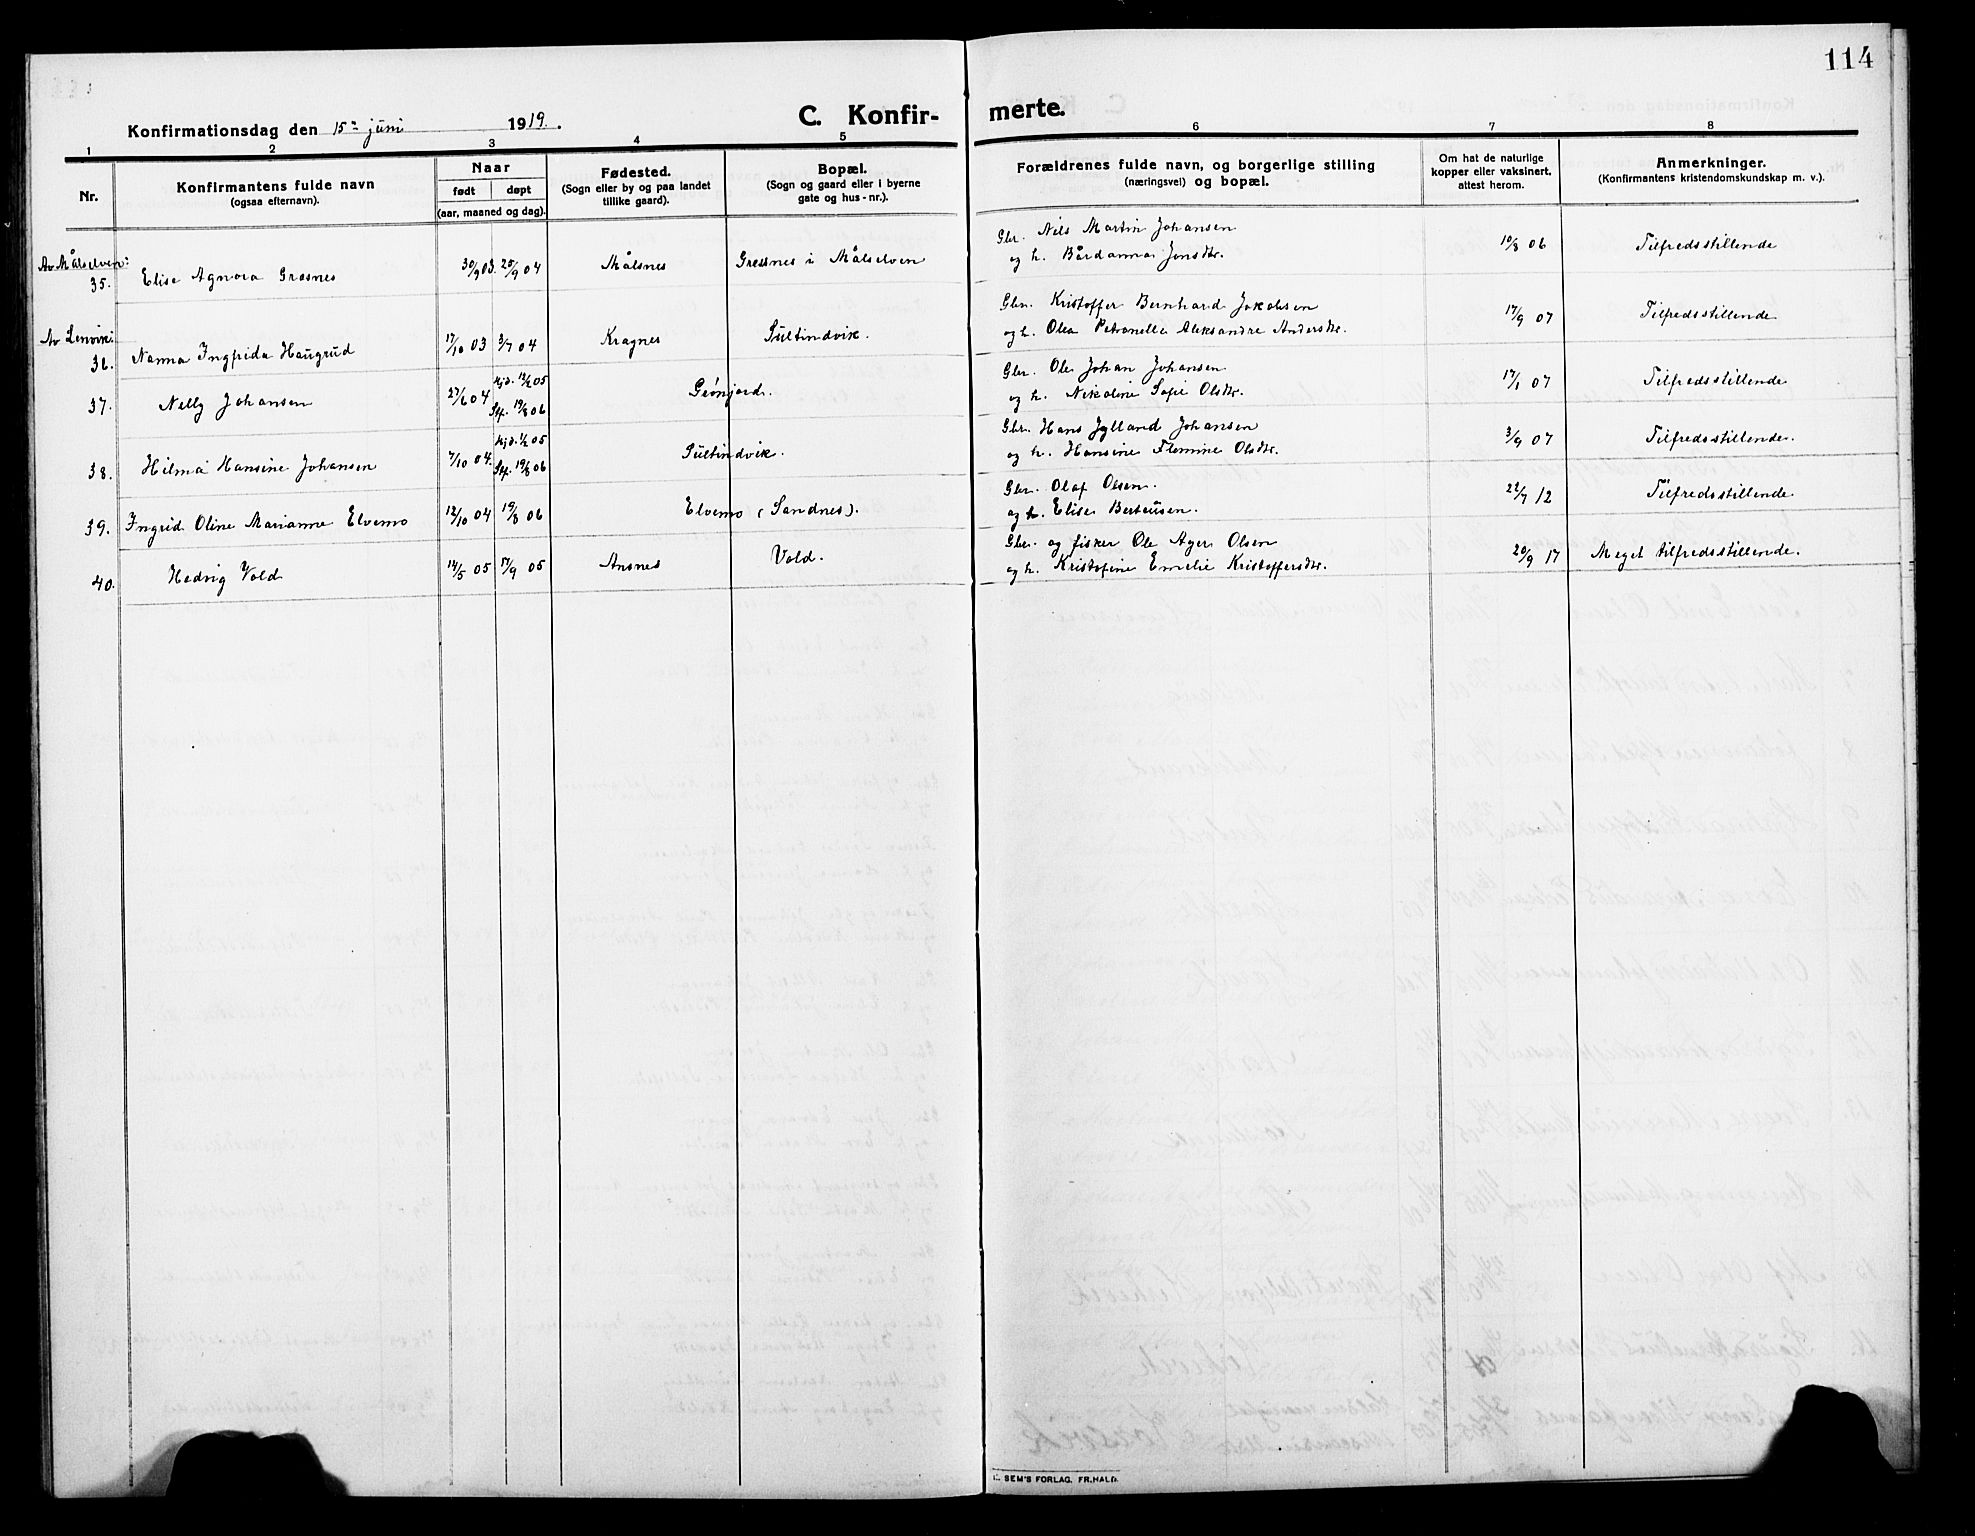 114
Konfirmationsdag den 15de juni 1919.
C. Konfirmerte.
1 2 3 4 5 6 7 8
Nr.
Konfirmantens fulde navn
(ogsaa efternavn).
Naar
født døpt
(aar, maaned og dag).
Fødested.
(Sogn eller by og paa landet
tillike gaard).
Bopæl.
(Sogn og gaard eller i byerne
gate og hus-nr.).
Forældrenes fulde navn, og borgerlige stilling
(næringsvei) og bopæl.
Om hat de naturlige
kopper eller vaksinert,
attest herom.
Anmerkninger.
(Konfirmantens kristendomskundskap m. v.).
Av Målselven:
35. Elise Agnora Grasnes 30/9 03. 25/9 04 Målsnes Gresnes i Målselven Gbr. Nils Martin Johansen 10/8 06 Tilfredsstillende
og h. Bårdanna Jensdtr.
Av Lenvik:
36. Nanna Ingfrida Haugrud 17/10 03 3/7 04 Kragnes Sultindvik. Gbr. Kristoffer Bernhard Jakobsen 17/9 07 Tilfredsstillende
og h. Olea Petronelle Aleksandre Andersdtr.
37. Nelly Johansen 27/6 04 hjd. 12/2 05 Grønjord. Gbr. Ole Johan Johansen 17/1 07 Tilfredsstillende
Stf. 19/8 06 og h. Nikoline Sofie Olsdtr.
38. Hilma Hansine Johansen 7/10 04. hjd. 1/2 05 Sultindvik. Gbr. Hans Jylland Johansen 3/9 07 Tilfredsstillende.
Stf. 19/8 06 og h. Hansine Flemine Olsdtr.
39. Ingrid Oline Marianne Elvemo 12/10 04 19/8 06 Elvemo (Sandnes). Gbr. Olaf Olsen. 22/7 12 Tilfredsstillende
og h. Elise Berteusen.
40. Hedvig Vold 14/5 05 17/9 05 Ansnes Vold. Gbr. og fisker Ole Ager Olsen 20/9 17 Meget tilfredsstillende.
og h. Kristofine Emelie Kristoffersdtr.
SEM'S FORLAG, FR.HALD.